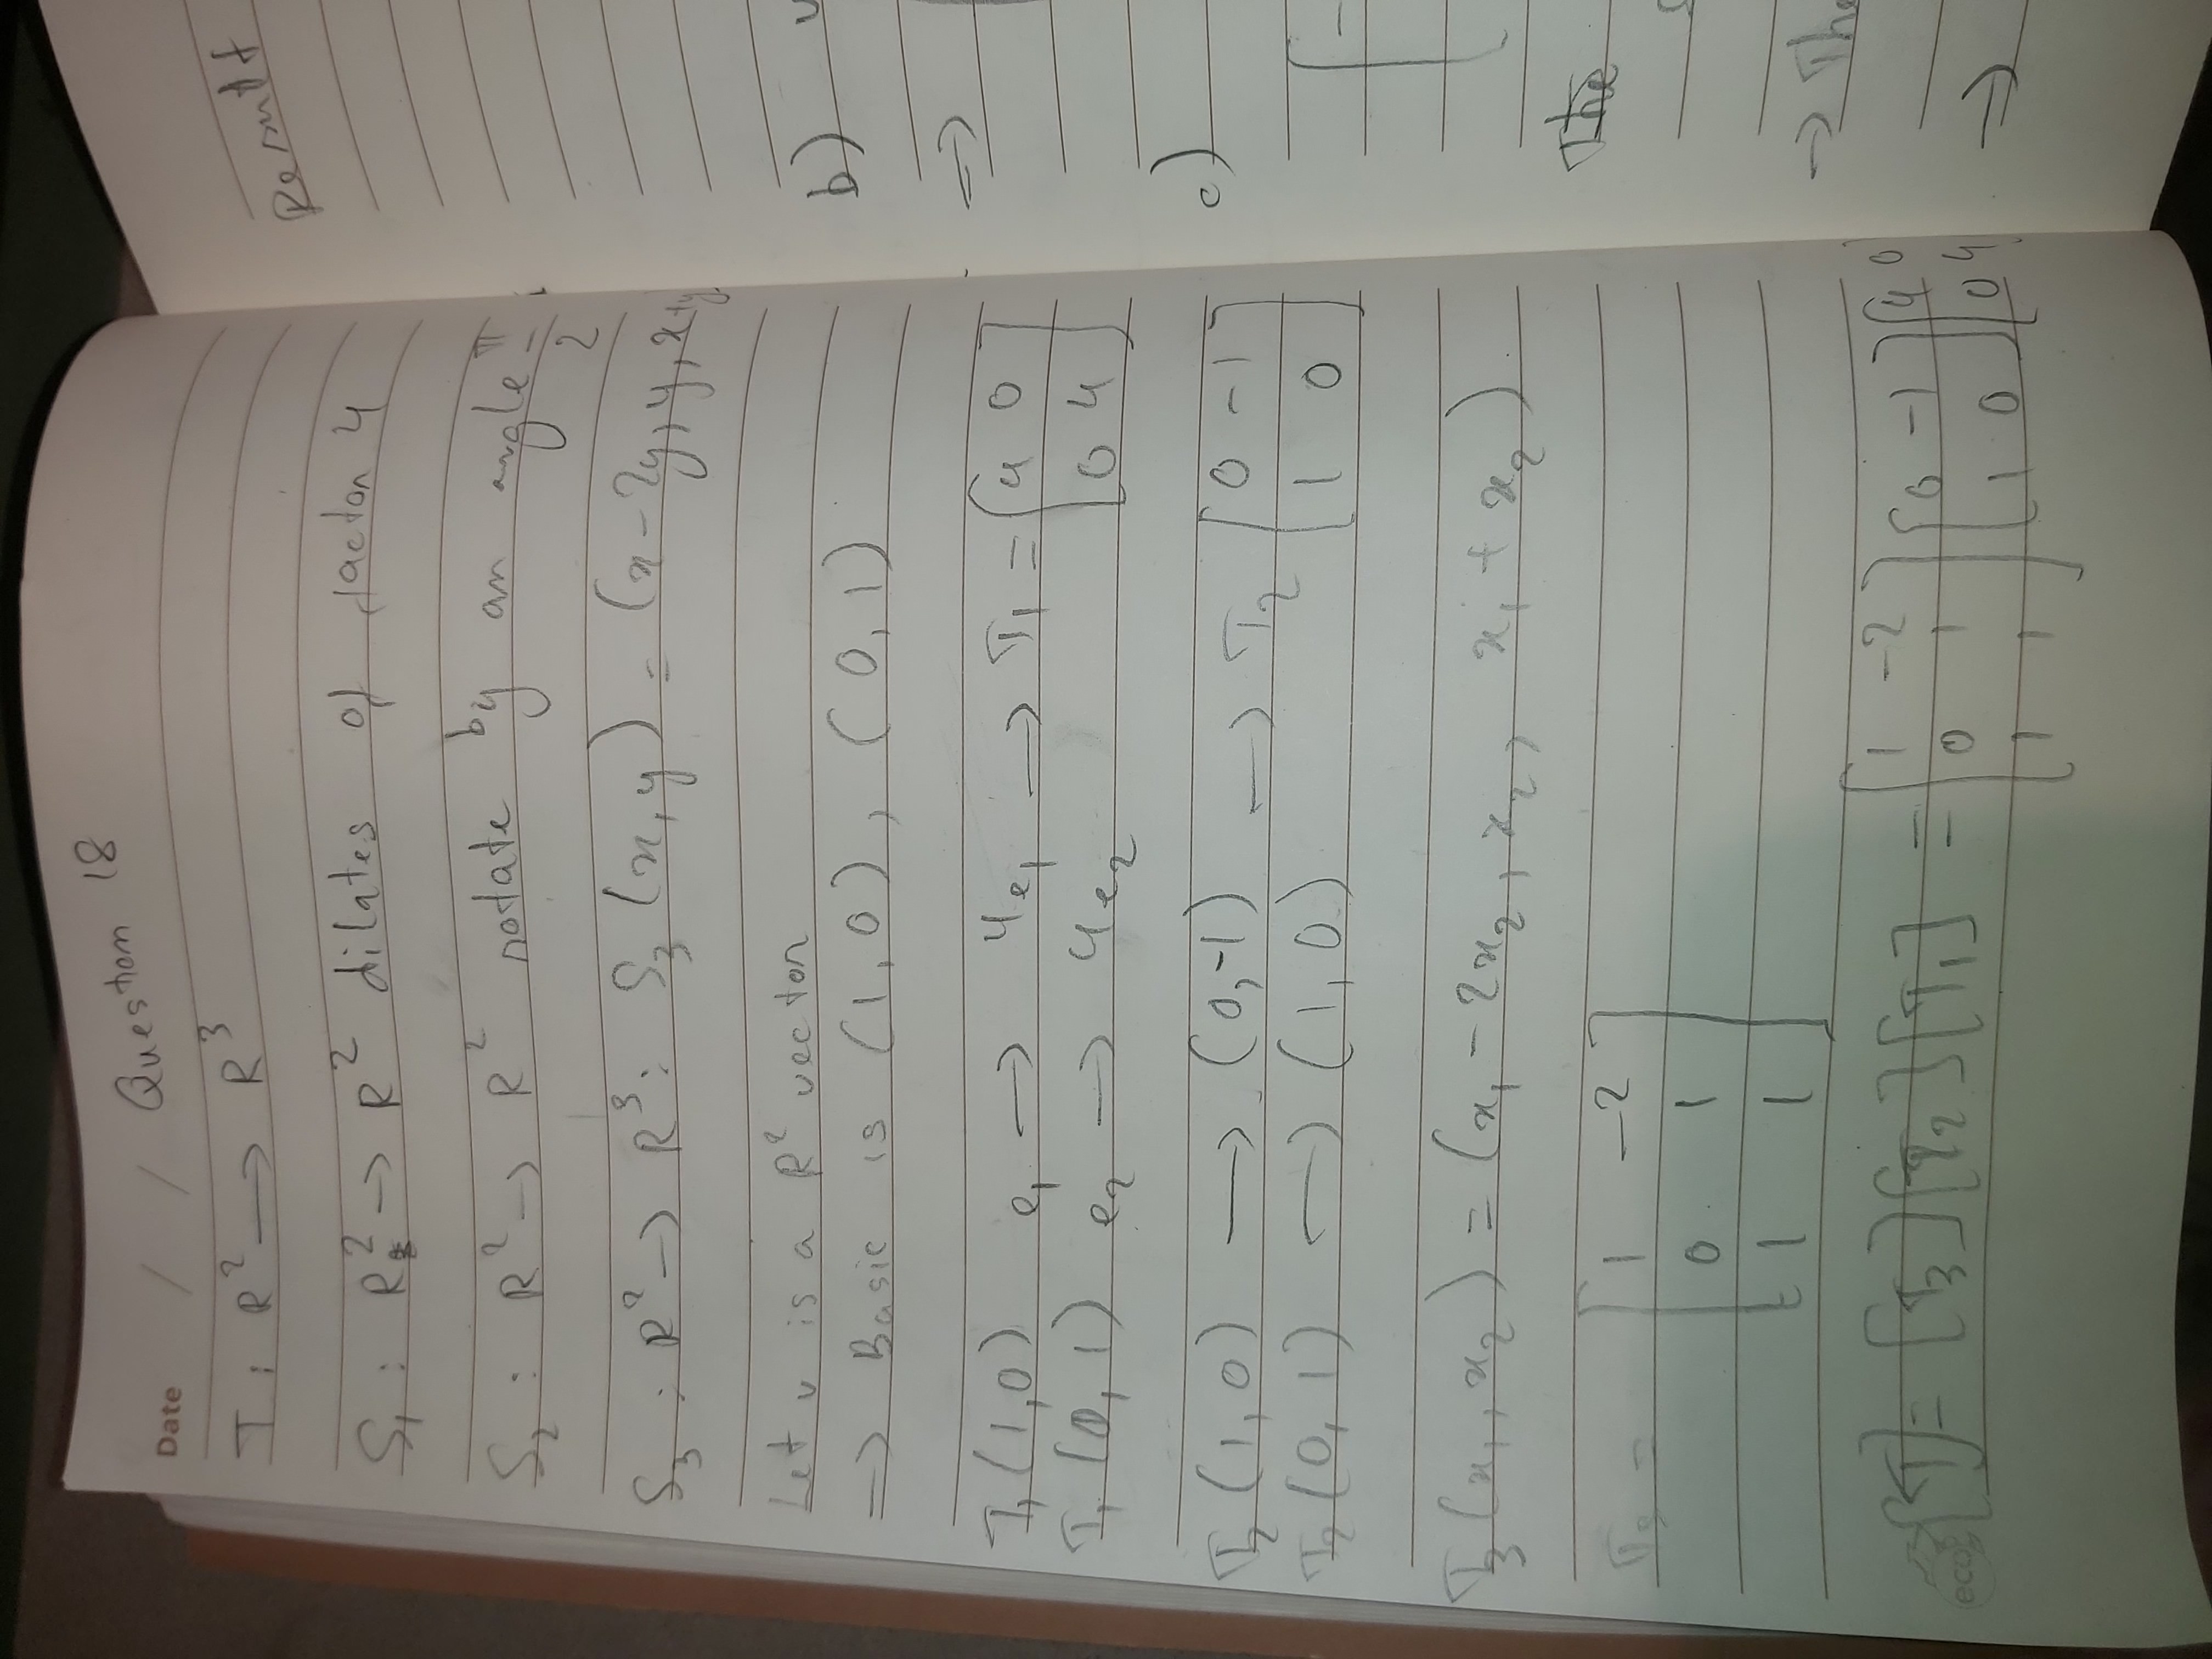 Question 18
Date / /
T : R² → R³
S₁ : R² → R² dilates of factor 4
S₂ : R² → R² rotate by an angle π/2
S₃ : R² → R³ : S₃ (x, y) = (x - 2y, y, x+y
Let v is a R² vector
⇒ Basic is (1, 0), (0, 1)
T₁ (1,0) e₁ → 4e₁ → T₁ = [4 0
T₁ (0, 1) e₂ → 4e₂ 0 4]
T₂ (1, 0) → (0, -1) → T₂ [0 -1
T₂ (0, 1) → (1, 0) 1 0]
T₃ (x₁, x₂) = (x₁ - 2x₂, x₂, x₁ + x₂).
T₃ = [1 -2
0 1
1 1]
[T] = [T₃][T₂][T₁] = [1 -2 [0 -1 [4 0
0 1 1 0] 0 4
1 1]
eco
Result
b)
⇒
c)
The
→ The
⇒